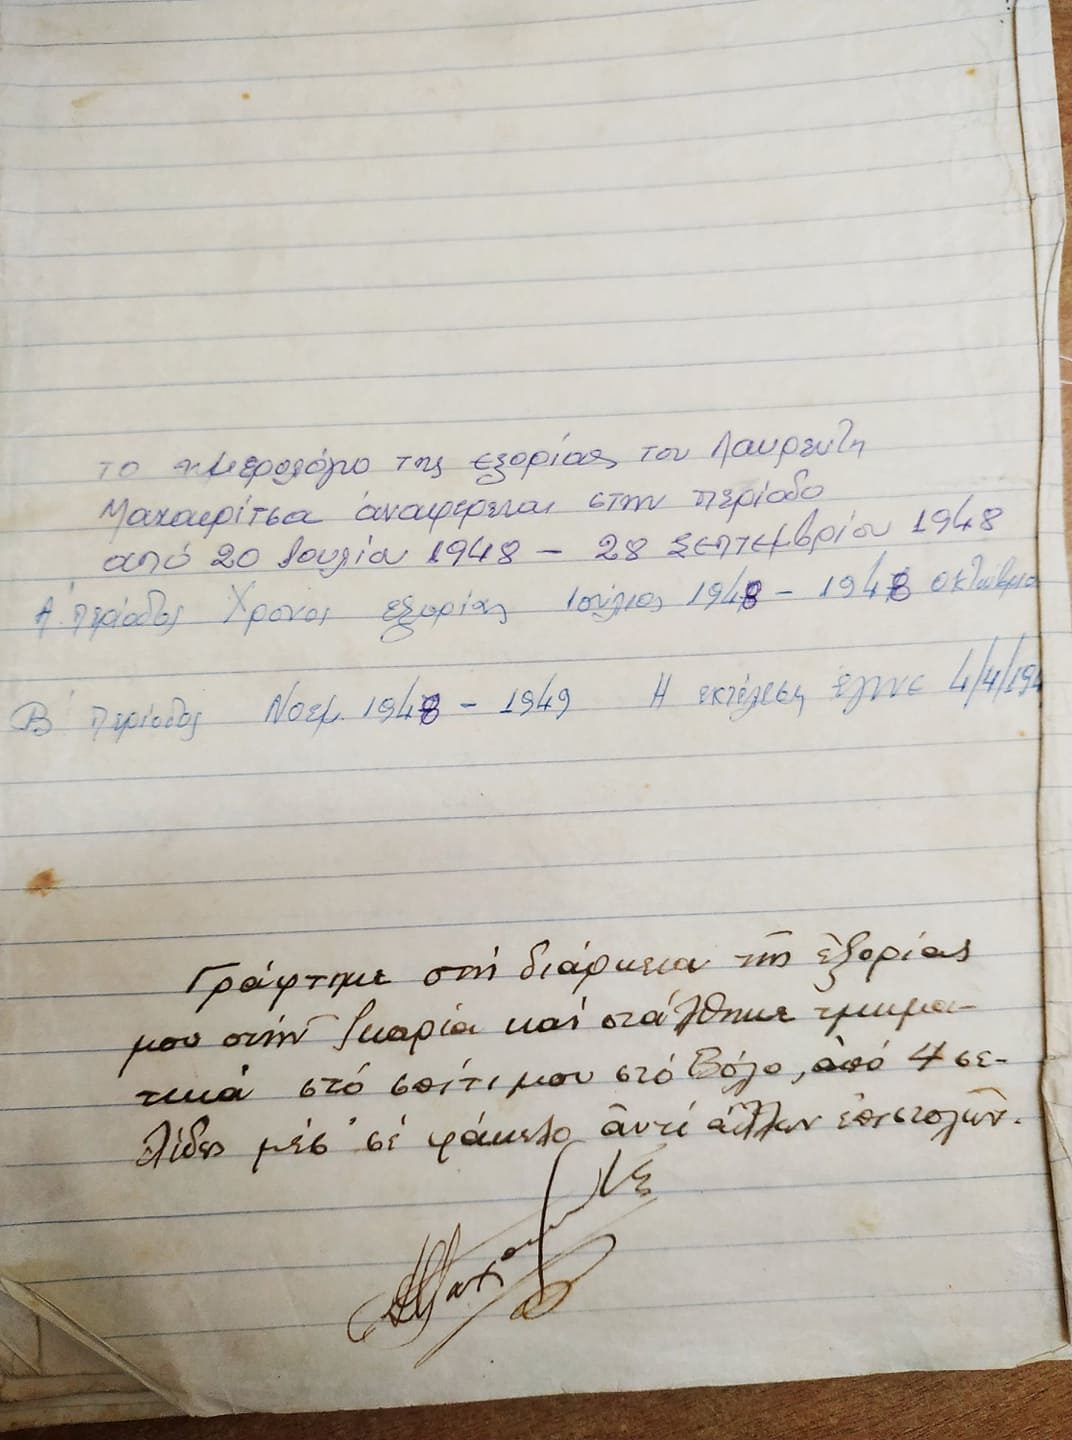 το ημερολόγιο της εξορίας του Λαυρέντη
Μαχαιρίτσα ἀναφερεται στην περίοδο
από 20 Ιουλίου 1948 - 28 Σεπτεμβρίου 1948
Α' περίοδος Χρόνοι εξορίας Ιούλιος 1948 - 1948 Οκτώβριο
Β' περίοδος Νοεμ. 1948 - 1949 Η εκτέλεση έγινε 4/4/194
Γράφτηκε στήν διάρκεια τῆς ἐξορίας
μου στήν Ἰκαρία καί στάλθηκε τμημα-
τικά στό σπίτι μου στό Βόλο, ἀπό 4 σε-
λίδες μέσ' σέ φάκελο ἀντί ἄλλων ἐπιστολῶν.